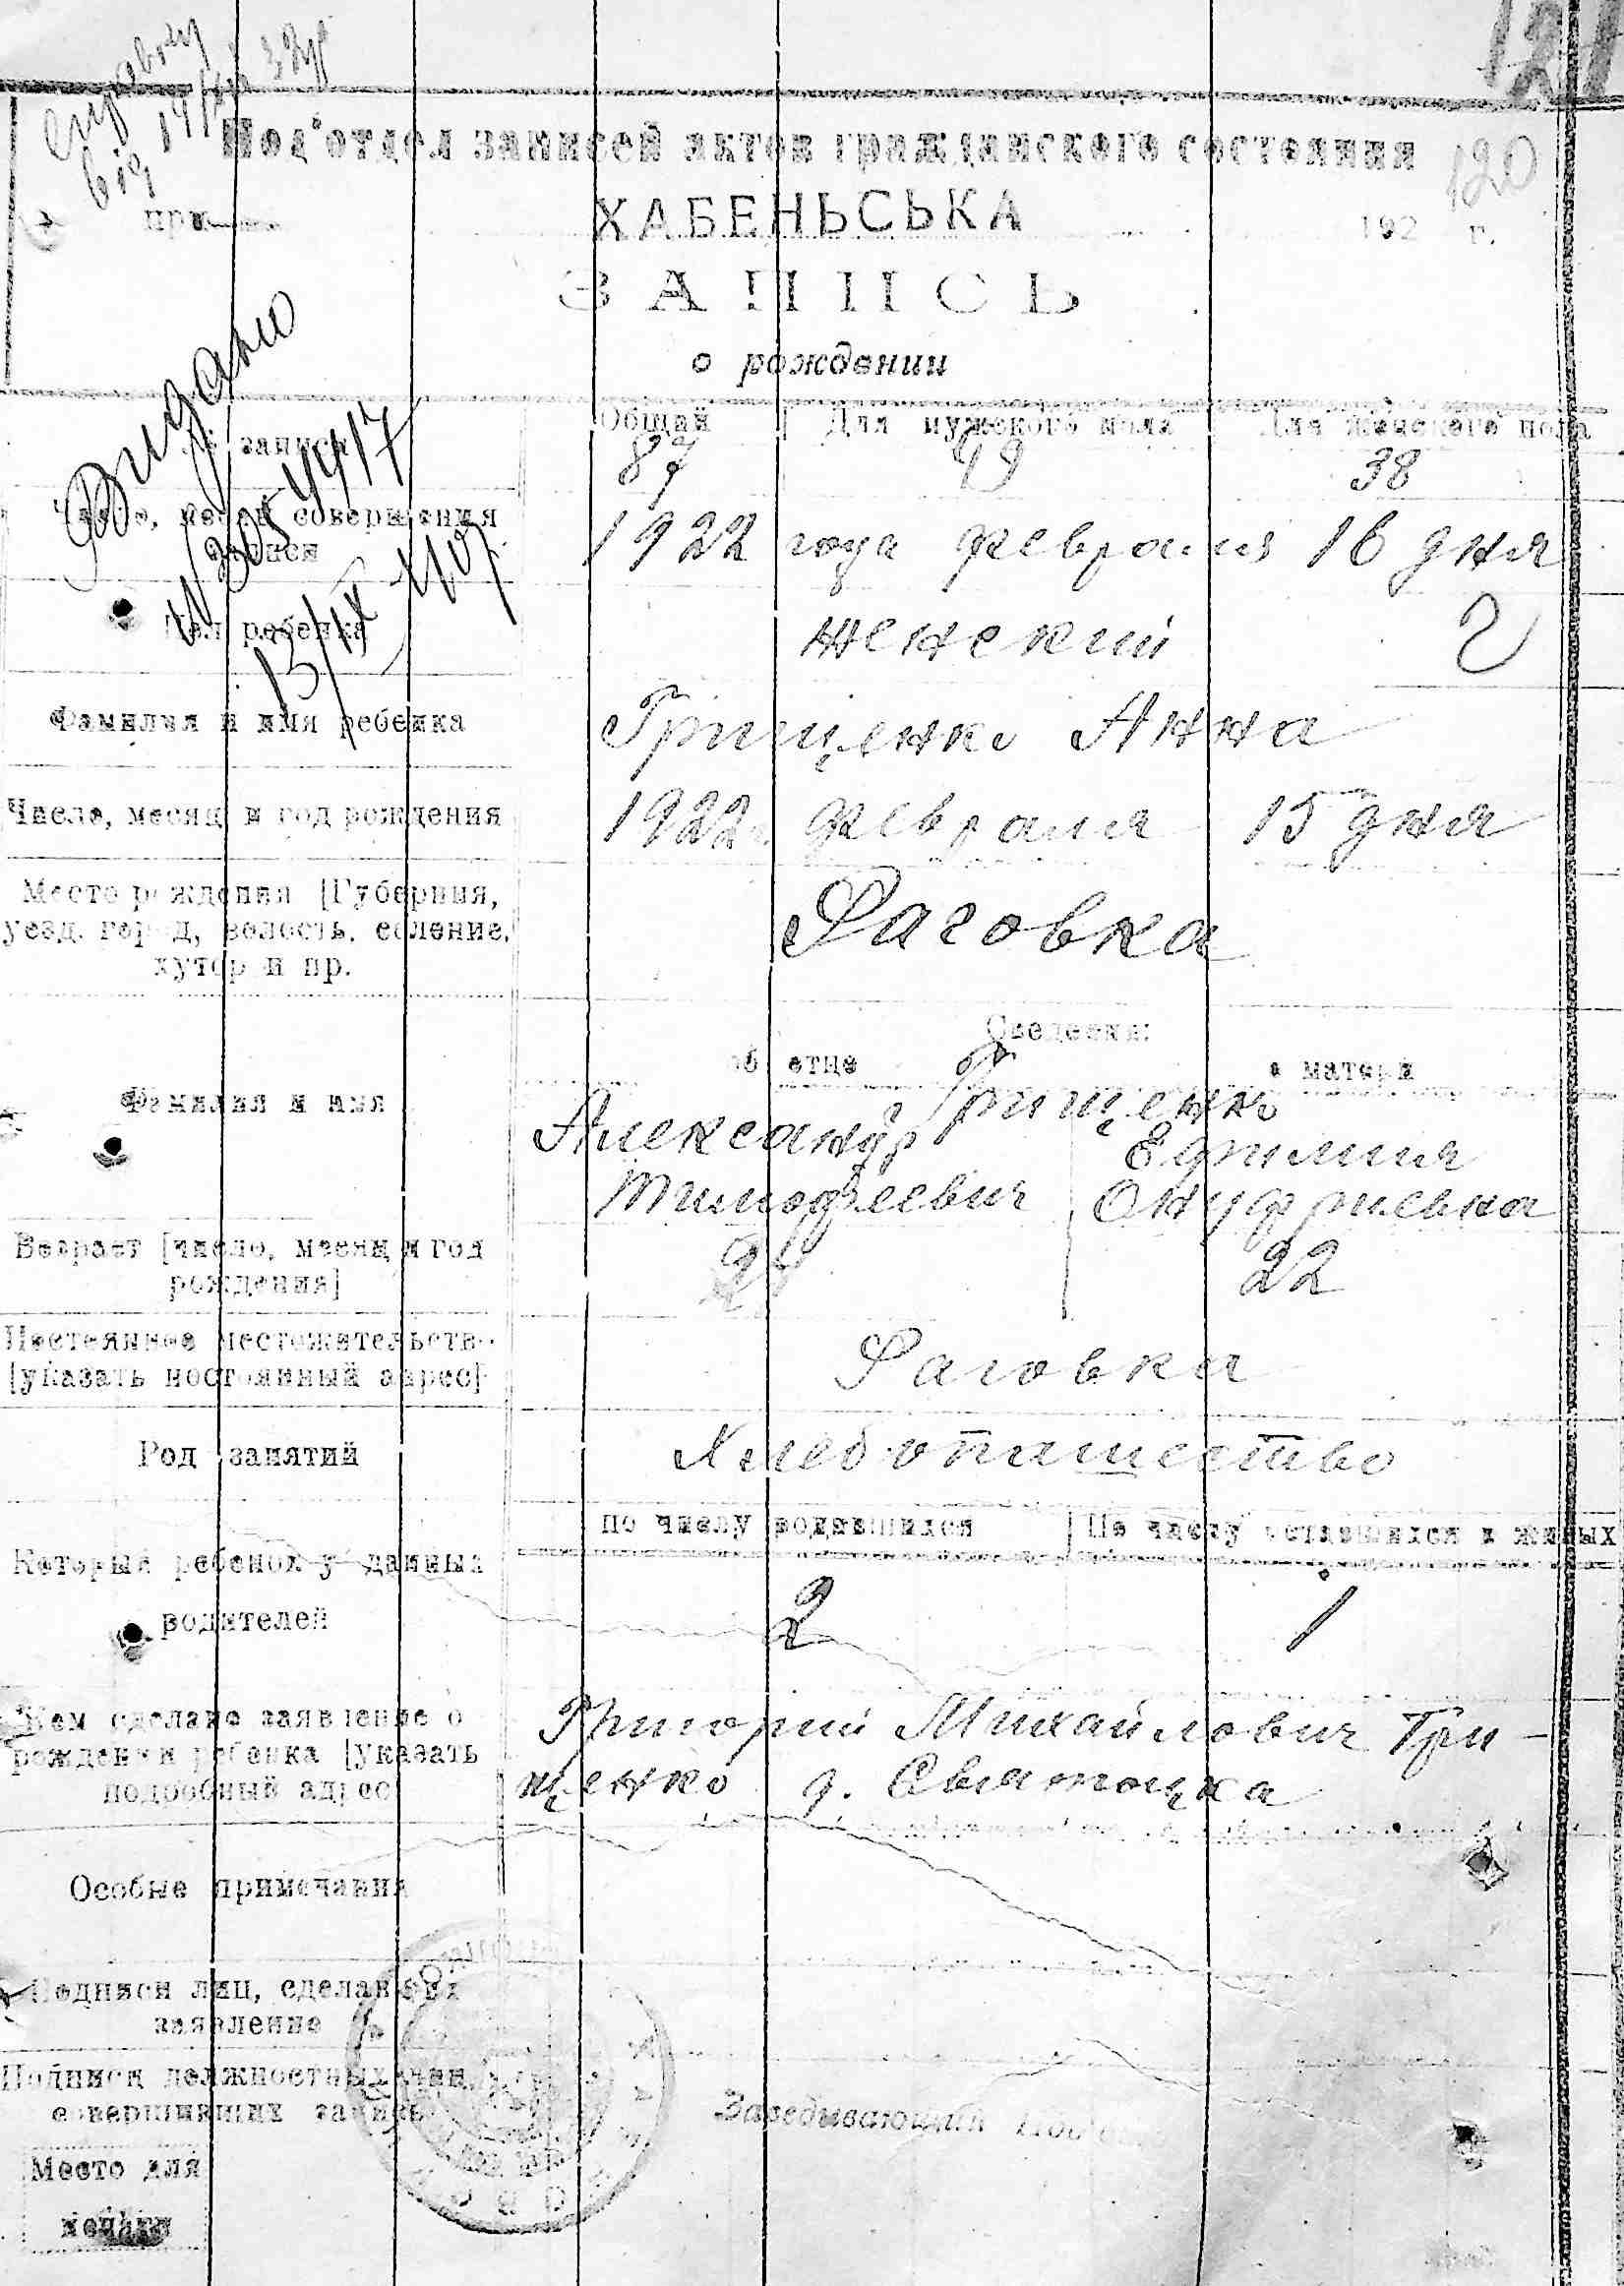 121
від
120
Под'отдел записей актов гражданского состояния
при
ХАБЕНЬСЬКА
192 г.
ЗАПИСЬ
о рождении
Видано
13/IX
Общий Для мужского пола Для женского пола
№ записи
87 38
Число, месяц совершения
записи
1922 года февраля 16 дня
Пол ребенка
женский
Фамилия и имя ребенка
Грищенко Анна
Число, месяц и год рождения
1922 г. февраля 15 дня
Место рождения [Губерния,
уезд, город, волость, селение,
хутор и пр.
Раговка
Сведения:
об отце о матери
Фамилия и имя
Грищенко
Александр Ефимия
Тимофеевич Онуфриевна
Возраст [число, месяц и год
рождения]
24 22
Постоянное местожительство
[указать постоянный адрес]
Раговка
Род занятий
Хлебопашество
по числу родившихся По числу оставшихся в живых
Который ребенок у данных
родителей
2 1
Кем сделано заявление о
рождении ребенка [указать
подробный адрес
Григорий Михайлович Гри-
щенко д.
Особые примечания
Подписи лиц, сделавших
заявление
Подписи должностных лиц
совершивших запись
Заведывающий
Место для
печати